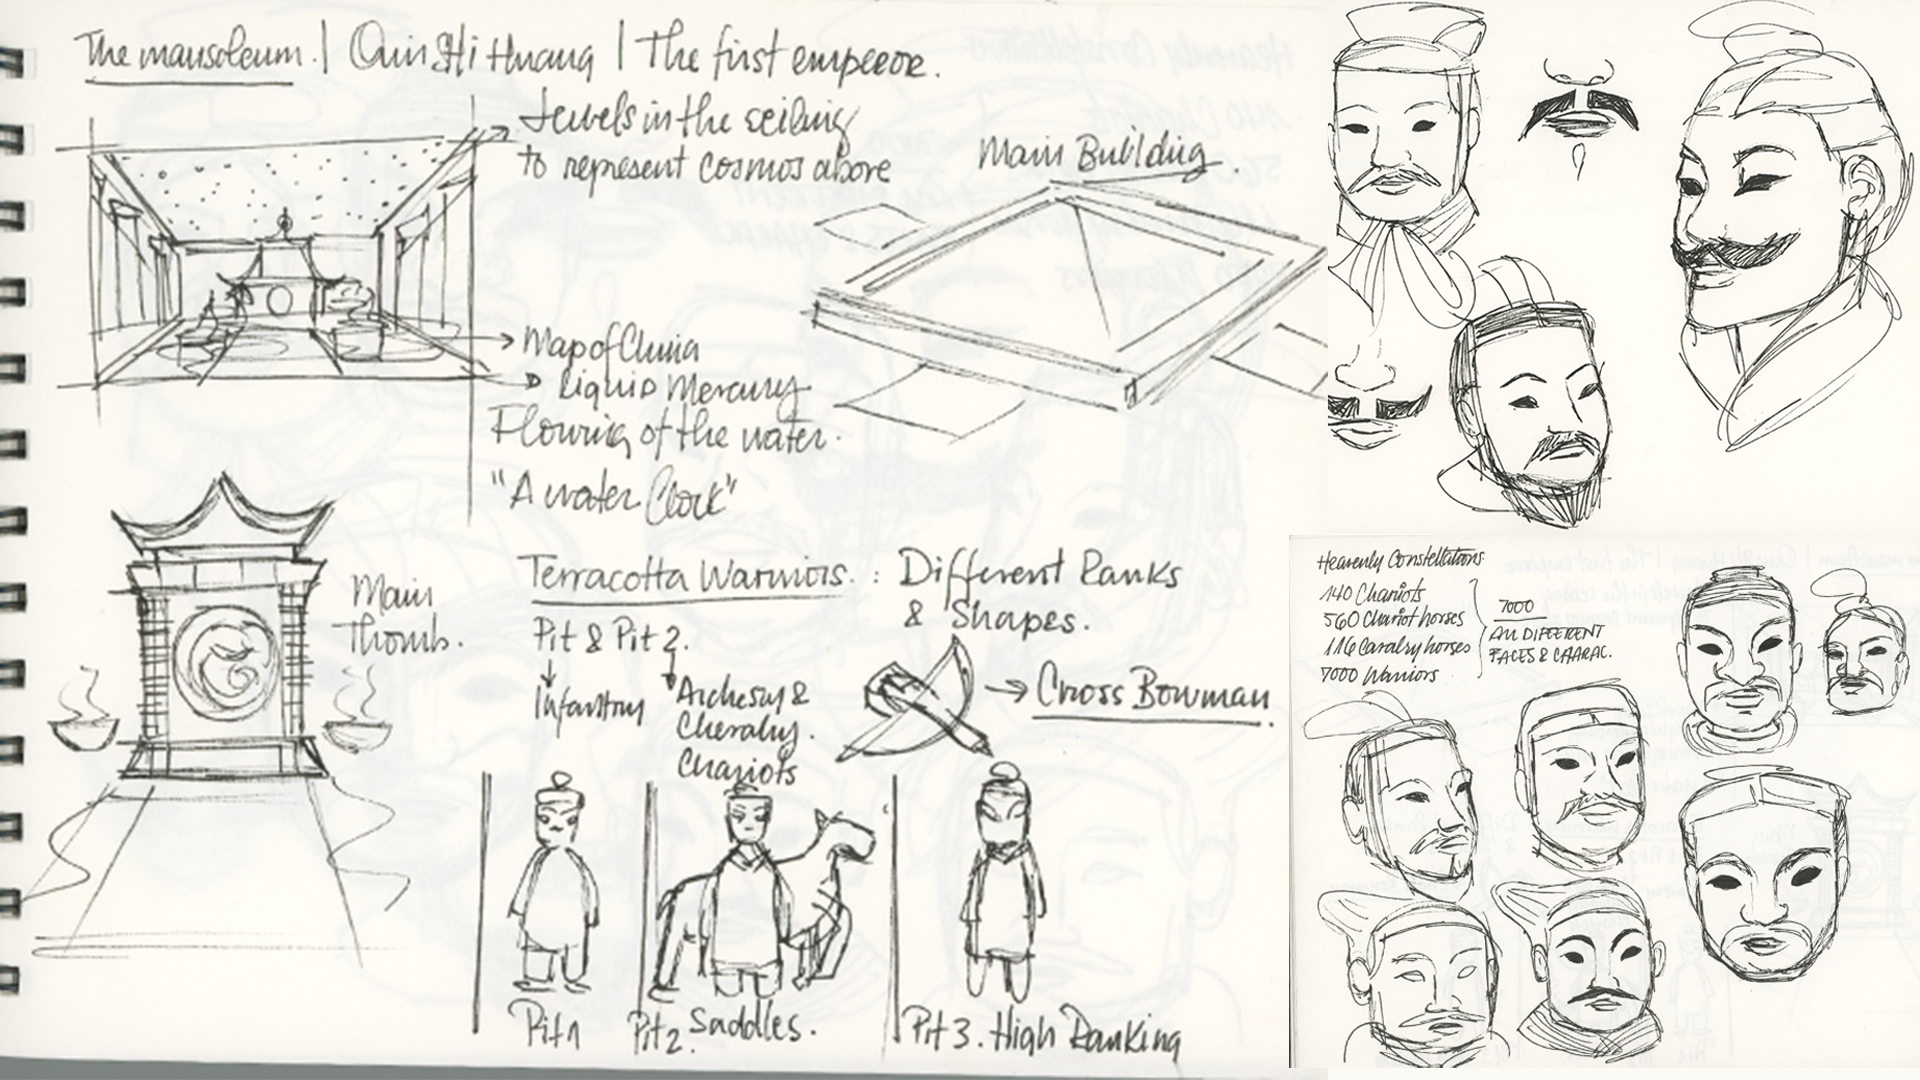 The mausoleum. | Quin Shi Huang | The first emperor.
Jewels in the ceiling
to represent cosmos above
Main Building.
Map of China
Liquid Mercury
Flowing of the water.
"A water Clock"
Main
Thomb.
Terracotta Warriors. : Different Ranks
& Shapes.
Pit & Pit 2.
Infantry
Archesry &
Chevalry.
Chariots
Cross Bowman.
Pit 1
Pit 2. Saddles.
Pit 3. High Ranking
Heavenly Constellations
140 Chariots
560 Chariot horses
116 Cavalry horses
7000 Warriors
7000
ALL DIFFERENT
FACES & CHARAC.